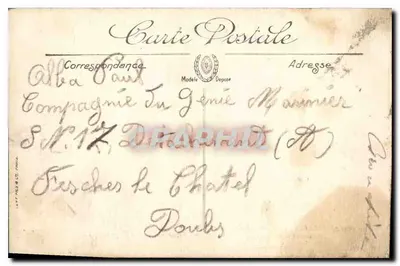 Carte Postale
Correspondance
Modèle Déposé
Adresse
Alba Paul
Compagnie du Genie Marinier
S N. 17, Détachement (A)
Fesches le Chatel
Doubs